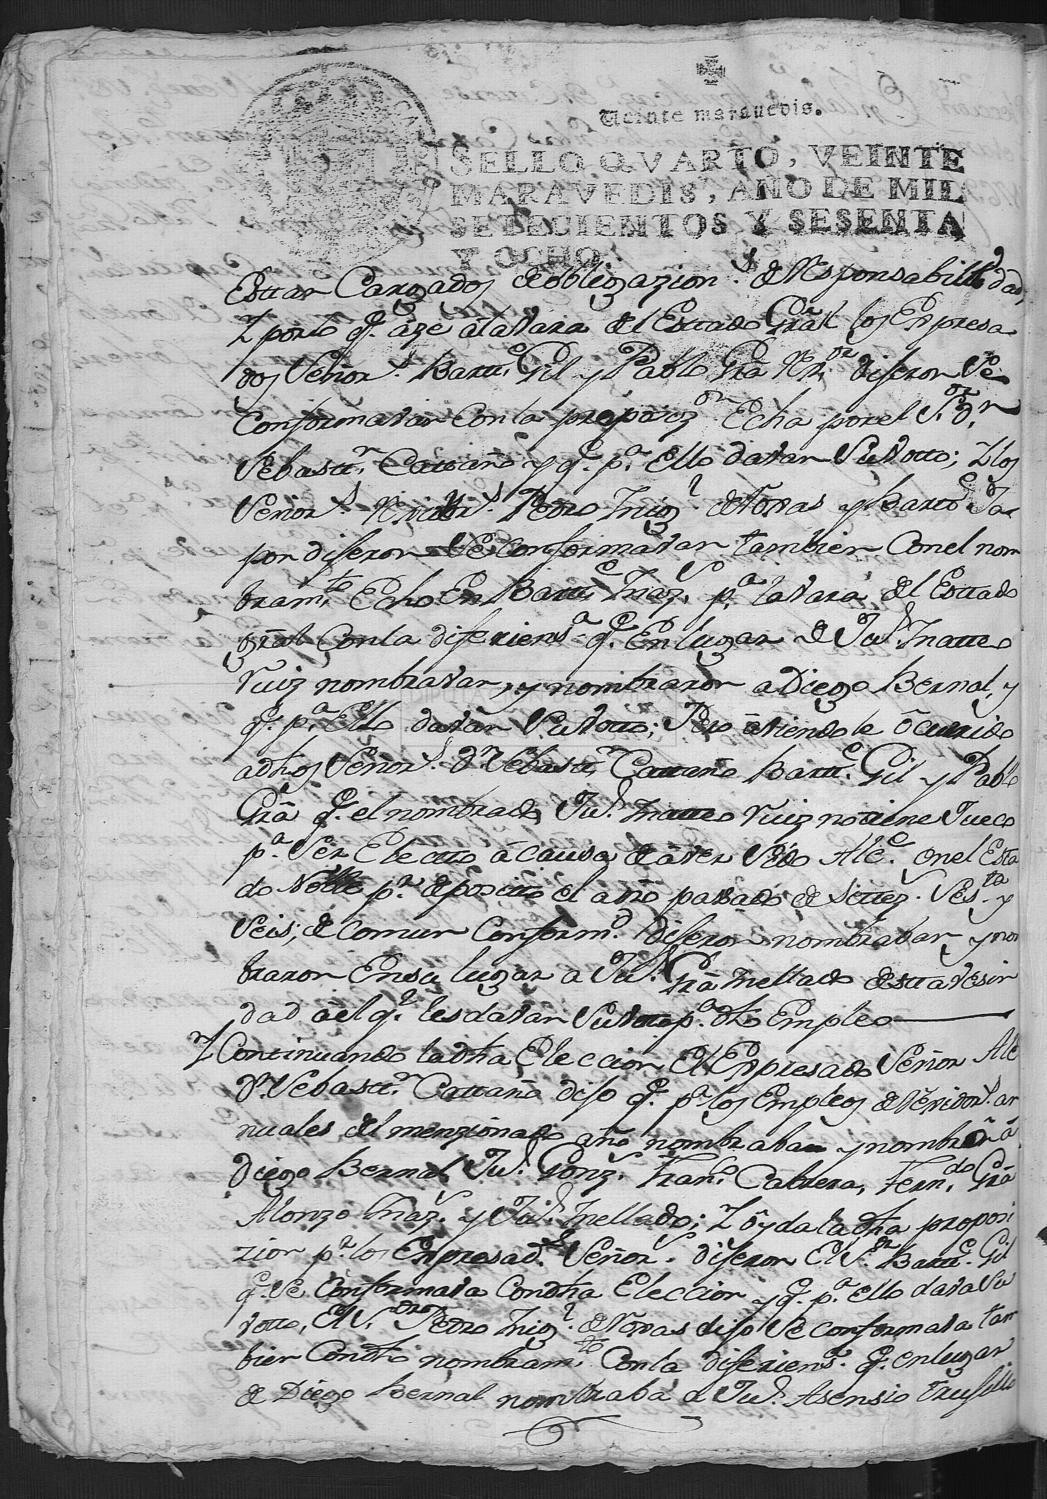 Veinte maravedis.
SELLO QVARTO, VEINTE
MARAVEDIS, AÑO DE MIL
SETECIENTOS Y SESENTA
Y OCHO.
Esttar Cargados de obligazion de Responsabilidad
Y por lo q.e aze a la vara del Estado Grâl los Expresa-
dos Señor.s Bartt.e Gil y Pablo Grâ Rx.or dijeron Se
Conformavan Con la proposiz.on Echa por el S.or D.n
Sebastt.n Cattaño y q.e p.a Ello davan Su votto; Y los
Señor.s Pedro Iñig.z de Novas y Bartt.e Ja-
por dijeron Se conformavan tambien Con el nom
bram.to Echo En Bartt.e Diaz p.a la vara del Esttado
grâl Con la diferiens.a q.e En lugar de Ju.n Matteo
Ruiz nombravan, y nombraron a Diego Bernal, y
q.e p.a Ello davan Su votto; Pero âtiendo le ôcurrido
a dhos Señor.s D.n Sebastt.n Cattaño Bartt.e Gil y Pablo
Grâ q.e el nombrado Ju.n Matteo Ruiz no tiene Jueco
p.a Ser Electto â causa de aver Sido Alc.e en el Esta
do Noble p.r deposito el año pasado de settez. Ses.ta y
Seis; de comun Conform.d dijeron nombravan y nom
braron En su lugar a Ju.n Grâ Mellado de estta vesin
dad âel q.e les davan Su votto p.a dho Empleo
Y Continuando la dha Eleccion El Expresado Señor Alc.e
D.n Sebastt.n Cattaño dijo q.e p.a los Empleos de Rexidor.s an
nuales del menzionado año nombraba y nombró â
Diego Bernal, Ju.n Gonz.s, Fran.co Cabrera, Fern.do Grâ
Alonzo Diaz y Ju.n Mellado; Y ôyda la dha proposi
zion p.r los Expresad.os Señor.s dijeron El S.or Bartt.e Gil
q.e Se Conformava Con dha Eleccion y q.e p.a Ello dava Su
votto, El S.or Pedro Iñig.z de Novas dijo Se conformava tam
bien Con dho nombram.to Con la diferiens.a q.e en lugar
de Diego Bernal nombraba a Ju.n Asensio Trujillo